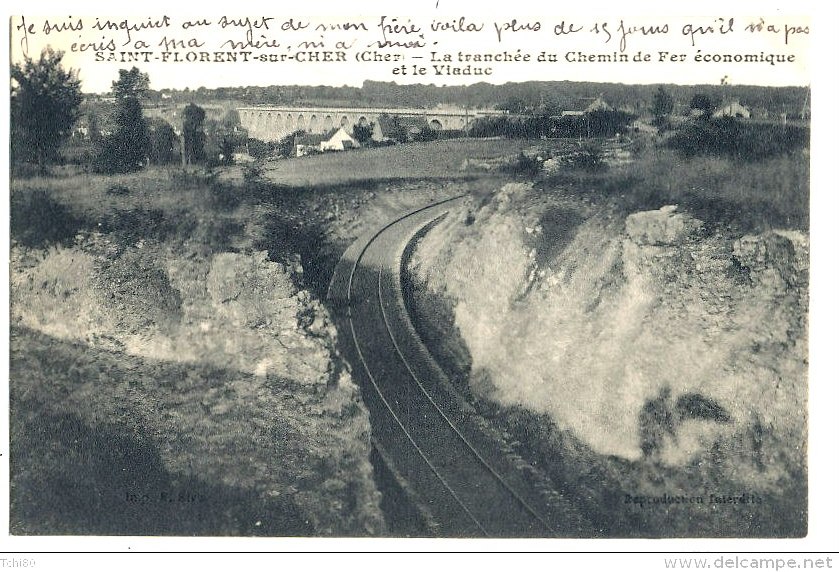 Je suis inquiet au sujet de mon frère, voila plus de 15 jours qu'il n'a pas
écris a ma mère, ni a moi.
SAINT-FLORENT-sur-CHER (Cher) - La tranchée du Chemin de Fer économique
et le Viaduc
Reproduction Interdite
Tchi80
www.delcampe.net